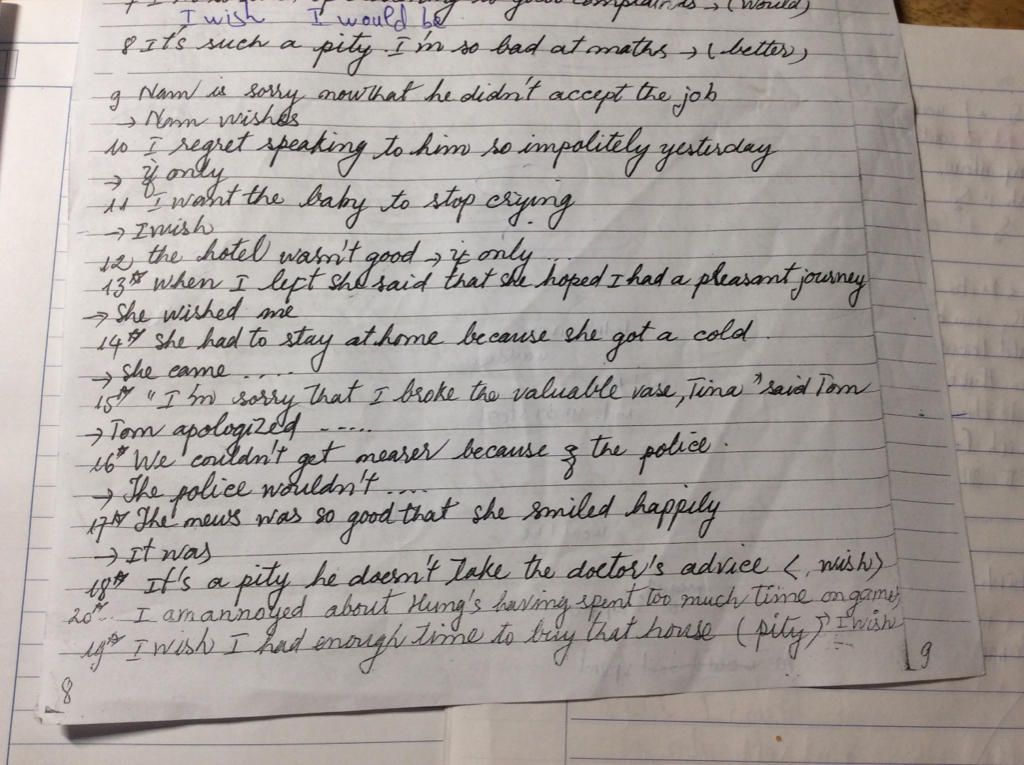 good complain is → (would)
I wish I would be
8 It's such a pity I'm so bad at maths → (better)
9 Nam is sorry now that he didn't accept the job
→ Nam wishes
10 I regret speaking to him so impolitely yesterday
→ if only
11 I want the baby to stop crying
→ I wish
12, the hotel wasn't good → if only ...
13* when I left she said that she hoped I had a pleasant journey
→ She wished me
14* she had to stay at home because she got a cold.
→ she came .....
15* "I'm sorry that I broke the valuable vase, Tina" said Tom
→ Tom apologized -----
16* We couldn't get nearer because of the police.
→ The police wouldn't ....
17* The news was so good that she smiled happily
→ It was
18* It's a pity he doesn't take the doctor's advice (wish)
20* I am annoyed about Hung's having spent too much time on games
19* I wish I had enough time to buy that house (pity) I wish
8
9